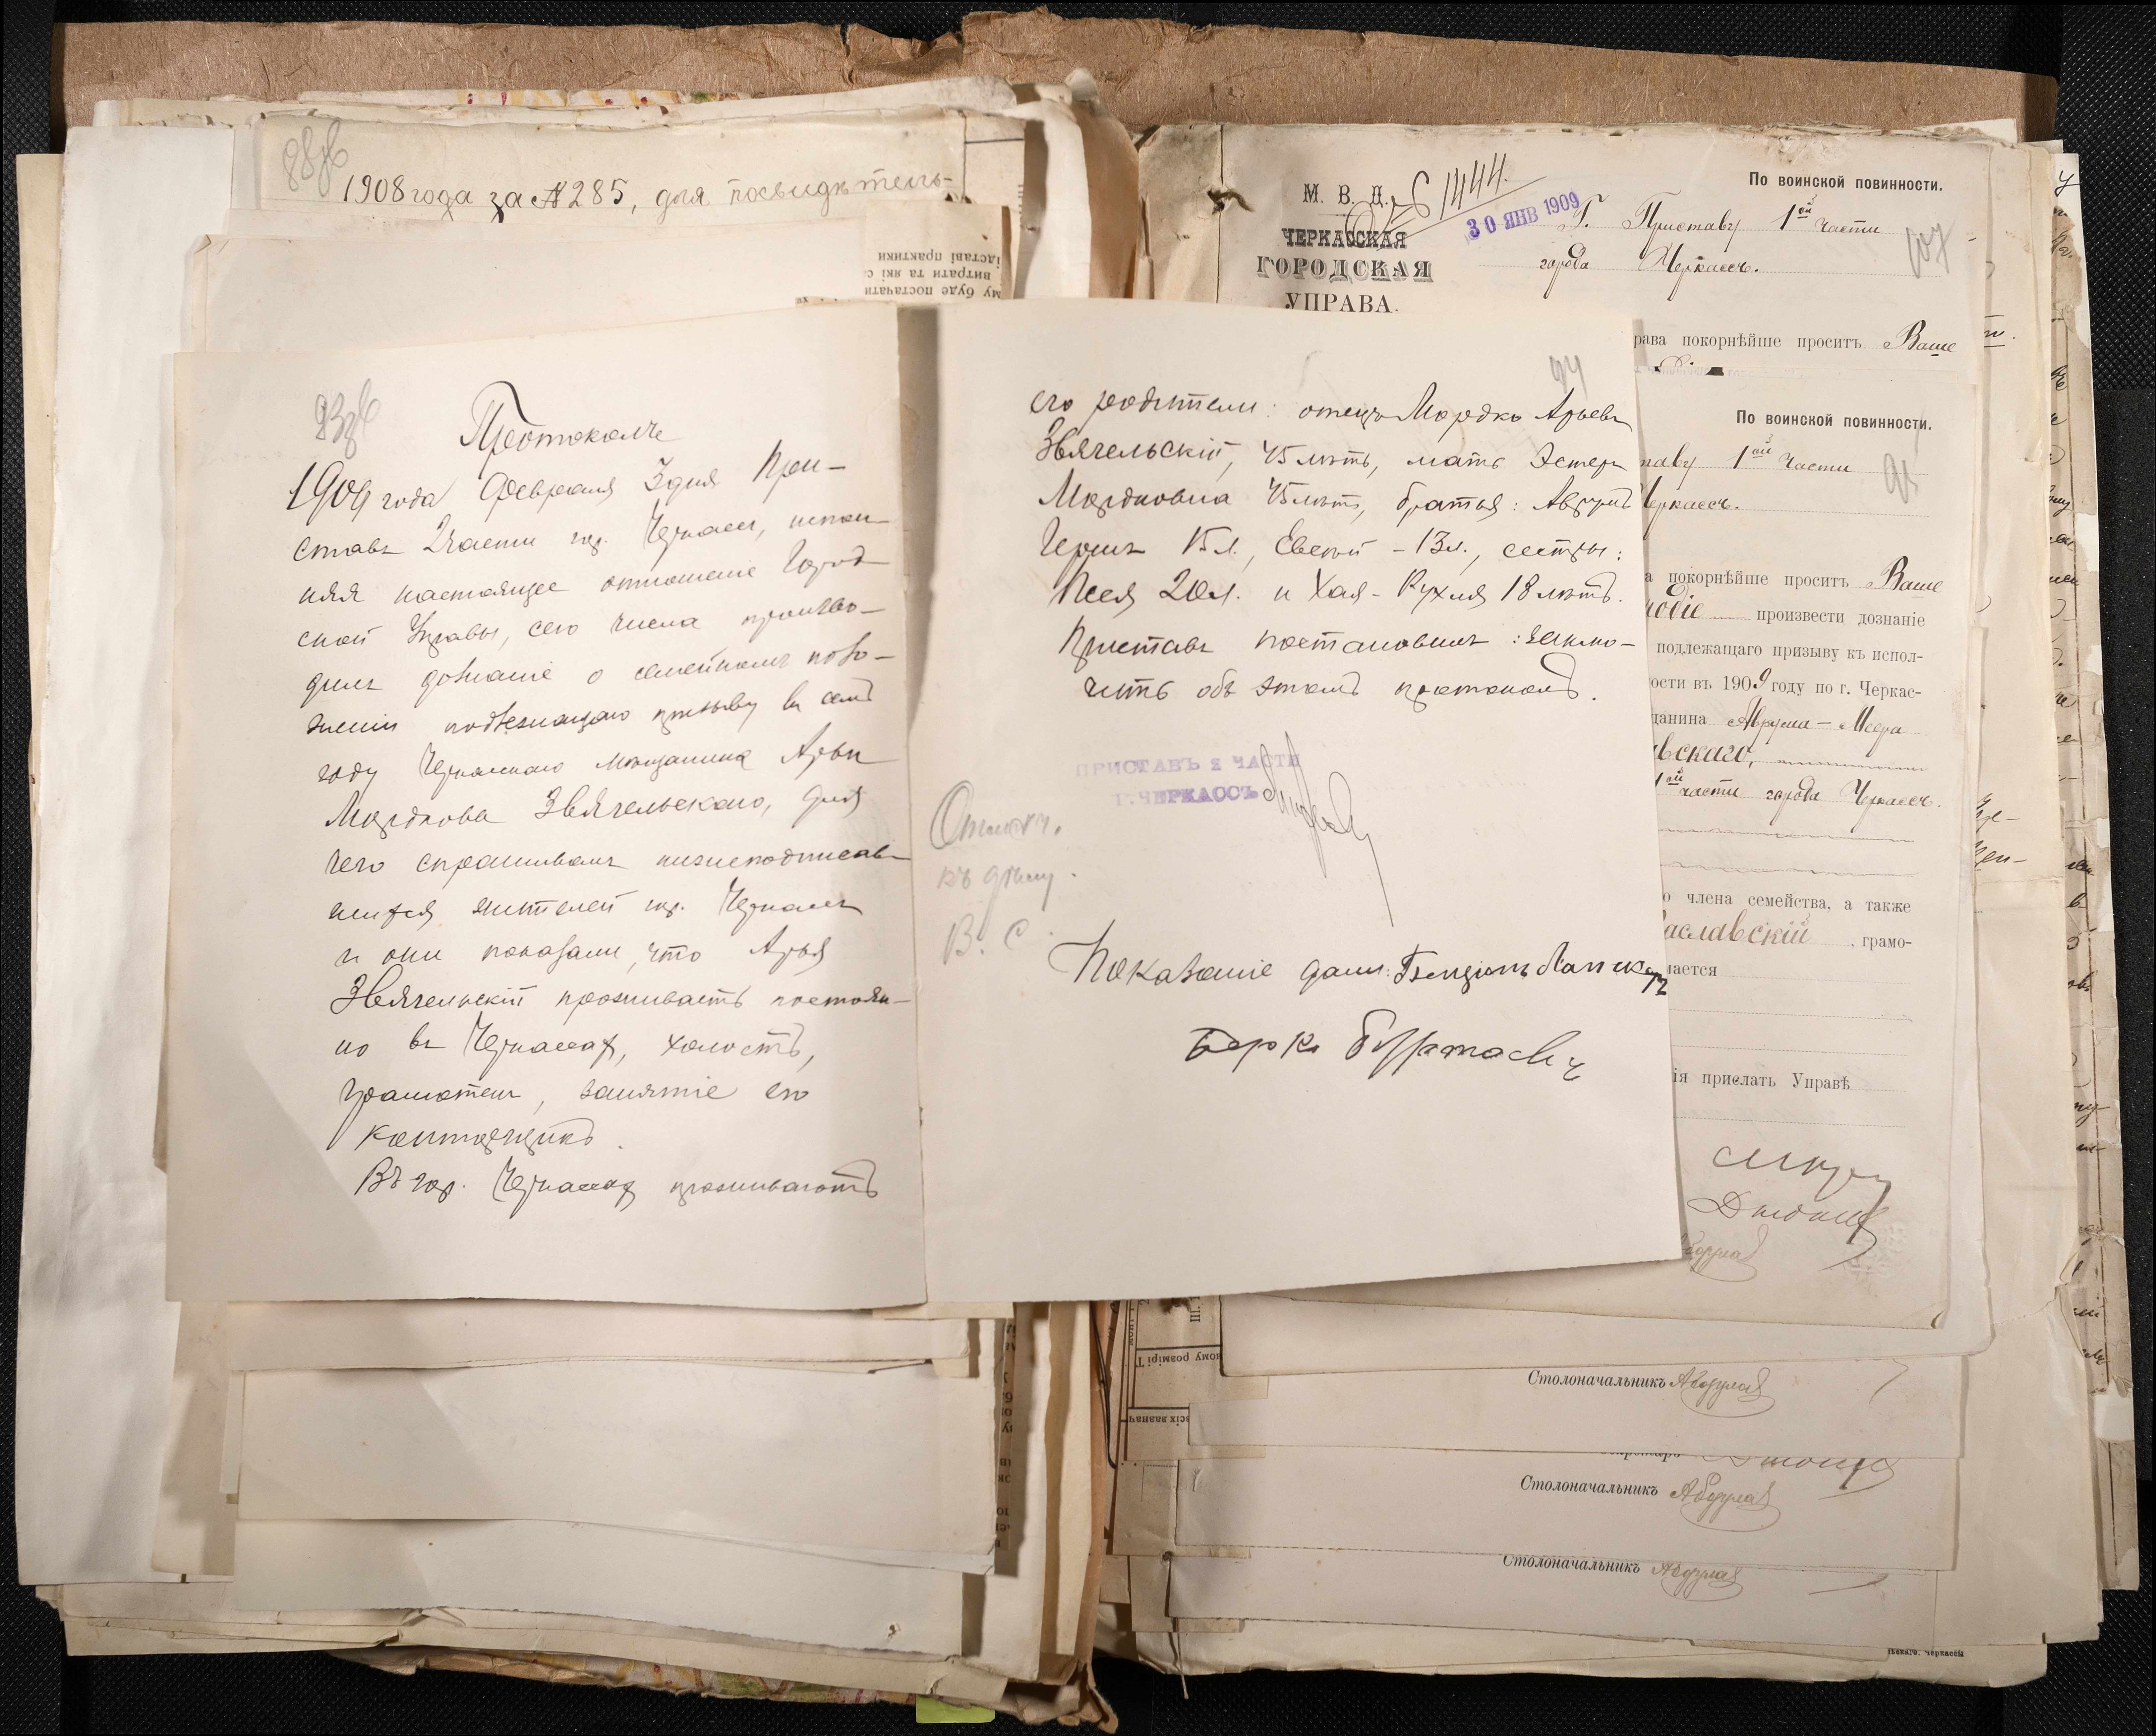 88об
1908 года за №285, для посвидѣтель-
93об
Протоколъ
1909 года Февраля 3 дня При-
ставъ 2 части гор. Черкассъ, испол-
няя настоящее отношеніе Город
ской Управы, сего числа произво-
дилъ дознаніе о семейномъ поло-
женіи подлежащаго призыву въ семъ
году Черкасскаго мѣщанина Арьи
Мордкова Звягельскаго, для
чего спрашивалъ нижеподписав
шихся жителей гор. Черкассъ
и они показали, что Арья
Звягельскій проживаетъ постоян-
но въ Черкассах, холостъ,
грамотенъ, занятіе его
конторщикъ.
Въ гор. Черкассах проживаютъ
94
его родители: отецъ Мордко Арьевъ
Звягельскій, 45 лѣтъ, мать Эстеръ
Мордковна 45 лѣтъ, братья: Аврумъ
Гершъ 15 л., Евсей - 13 л., сестры:
Песя 20 л. и Хая-Рухля 18 лѣтъ.
Приставъ постановилъ: заклю-
чить объ этомъ протоколъ.
ПРИСТАВЪ 2 ЧАСТИ
Г. ЧЕРКАССЪ
къ дѣлу.
В. С.
Показаніе дали: Бенціонъ
Берко
М. В. Д.
ЧЕРКАССКАЯ
ГОРОДСКАЯ
УПРАВА.
1444.
30 ЯНВ 1909
По воинской повинности.
Г. Приставу 1ой части
города Черкассъ.
107
рава покорнѣйше проситъ Ваше
По воинской повинности.
таву 1ой части
95
Черкассъ.
а покорнѣйше проситъ Ваше
родіе произвести дознаніе
подлежащаго призыву къ испол-
ости въ 1909 году по г. Черкас-
щанина Аврума-Меера
вскаго,
1ой части города Черкассъ.
о члена семейства, а также
аславскій, грамо-
мается
ія прислать Управѣ
Столоначальникъ
Столоначальникъ
Столоначальникъ